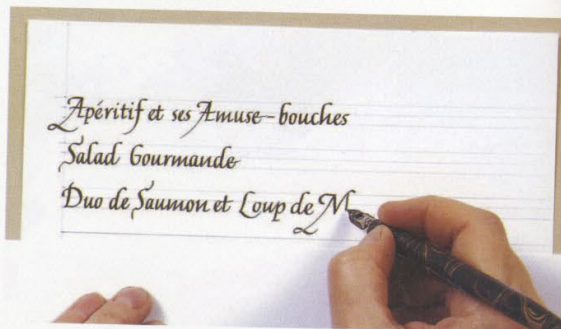 Apéritif et ses Amuse-bouches
Salad Gourmande
Duo de Saumon et Loup de M